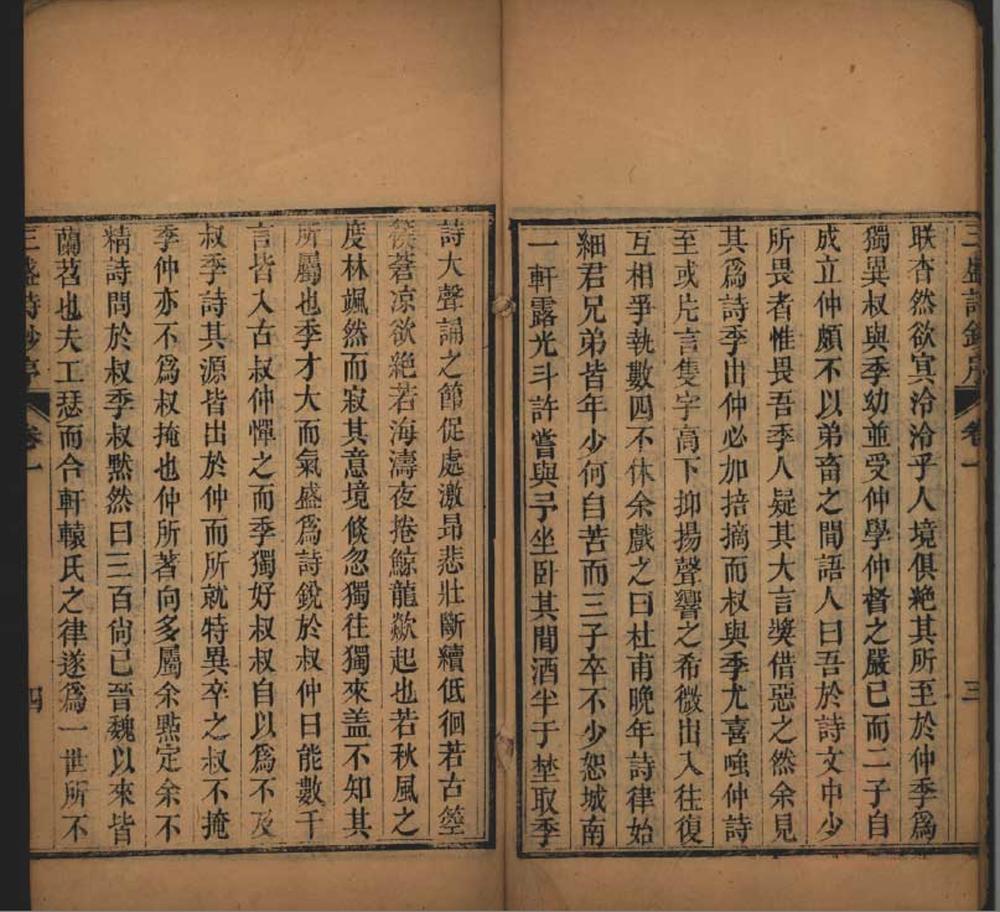 三盛詩鈔序 卷一 三
联杳然欲冥泠泠乎人境俱絶其所至於仲季爲
獨異叔與季幼並受仲學仲督之嚴已而二子自
成立仲頗不以弟畜之間語人曰吾於詩文中少
所畏者惟畏吾季人疑其大言奬借惡之然余見
其爲詩季出仲必加掊摘而叔與季尤喜嗤仲詩
至或片言隻字高下抑揚聲響之希微出入往復
互相爭執數四不休余戲之曰杜甫晩年詩律始
細君兄弟皆年少何自苦而三子卒不少恕城南
一軒露光斗許嘗與予坐卧其間酒半于埜取季
詩大聲誦之節促處激昂悲壯斷續低徊若古箜
篌蒼凉欲絶若海濤夜捲鯨龍歘起也若秋風之
度林颯然而寂其意境倐忽獨往獨來盖不知其
所屬也季才大而氣盛爲詩銳於叔仲日能數千
言皆入古叔仲憚之而季獨好叔叔自以爲不及
叔季詩其源皆出於仲而所就特異卒之叔不掩
季仲亦不爲叔掩也仲所著向多屬余㸃定余不
精詩問於叔季叔黙然曰三百尙已晉魏以來皆
蘭苕也夫工瑟而合軒轅氏之律遂爲一世所不
三盛詩鈔序 卷一 四